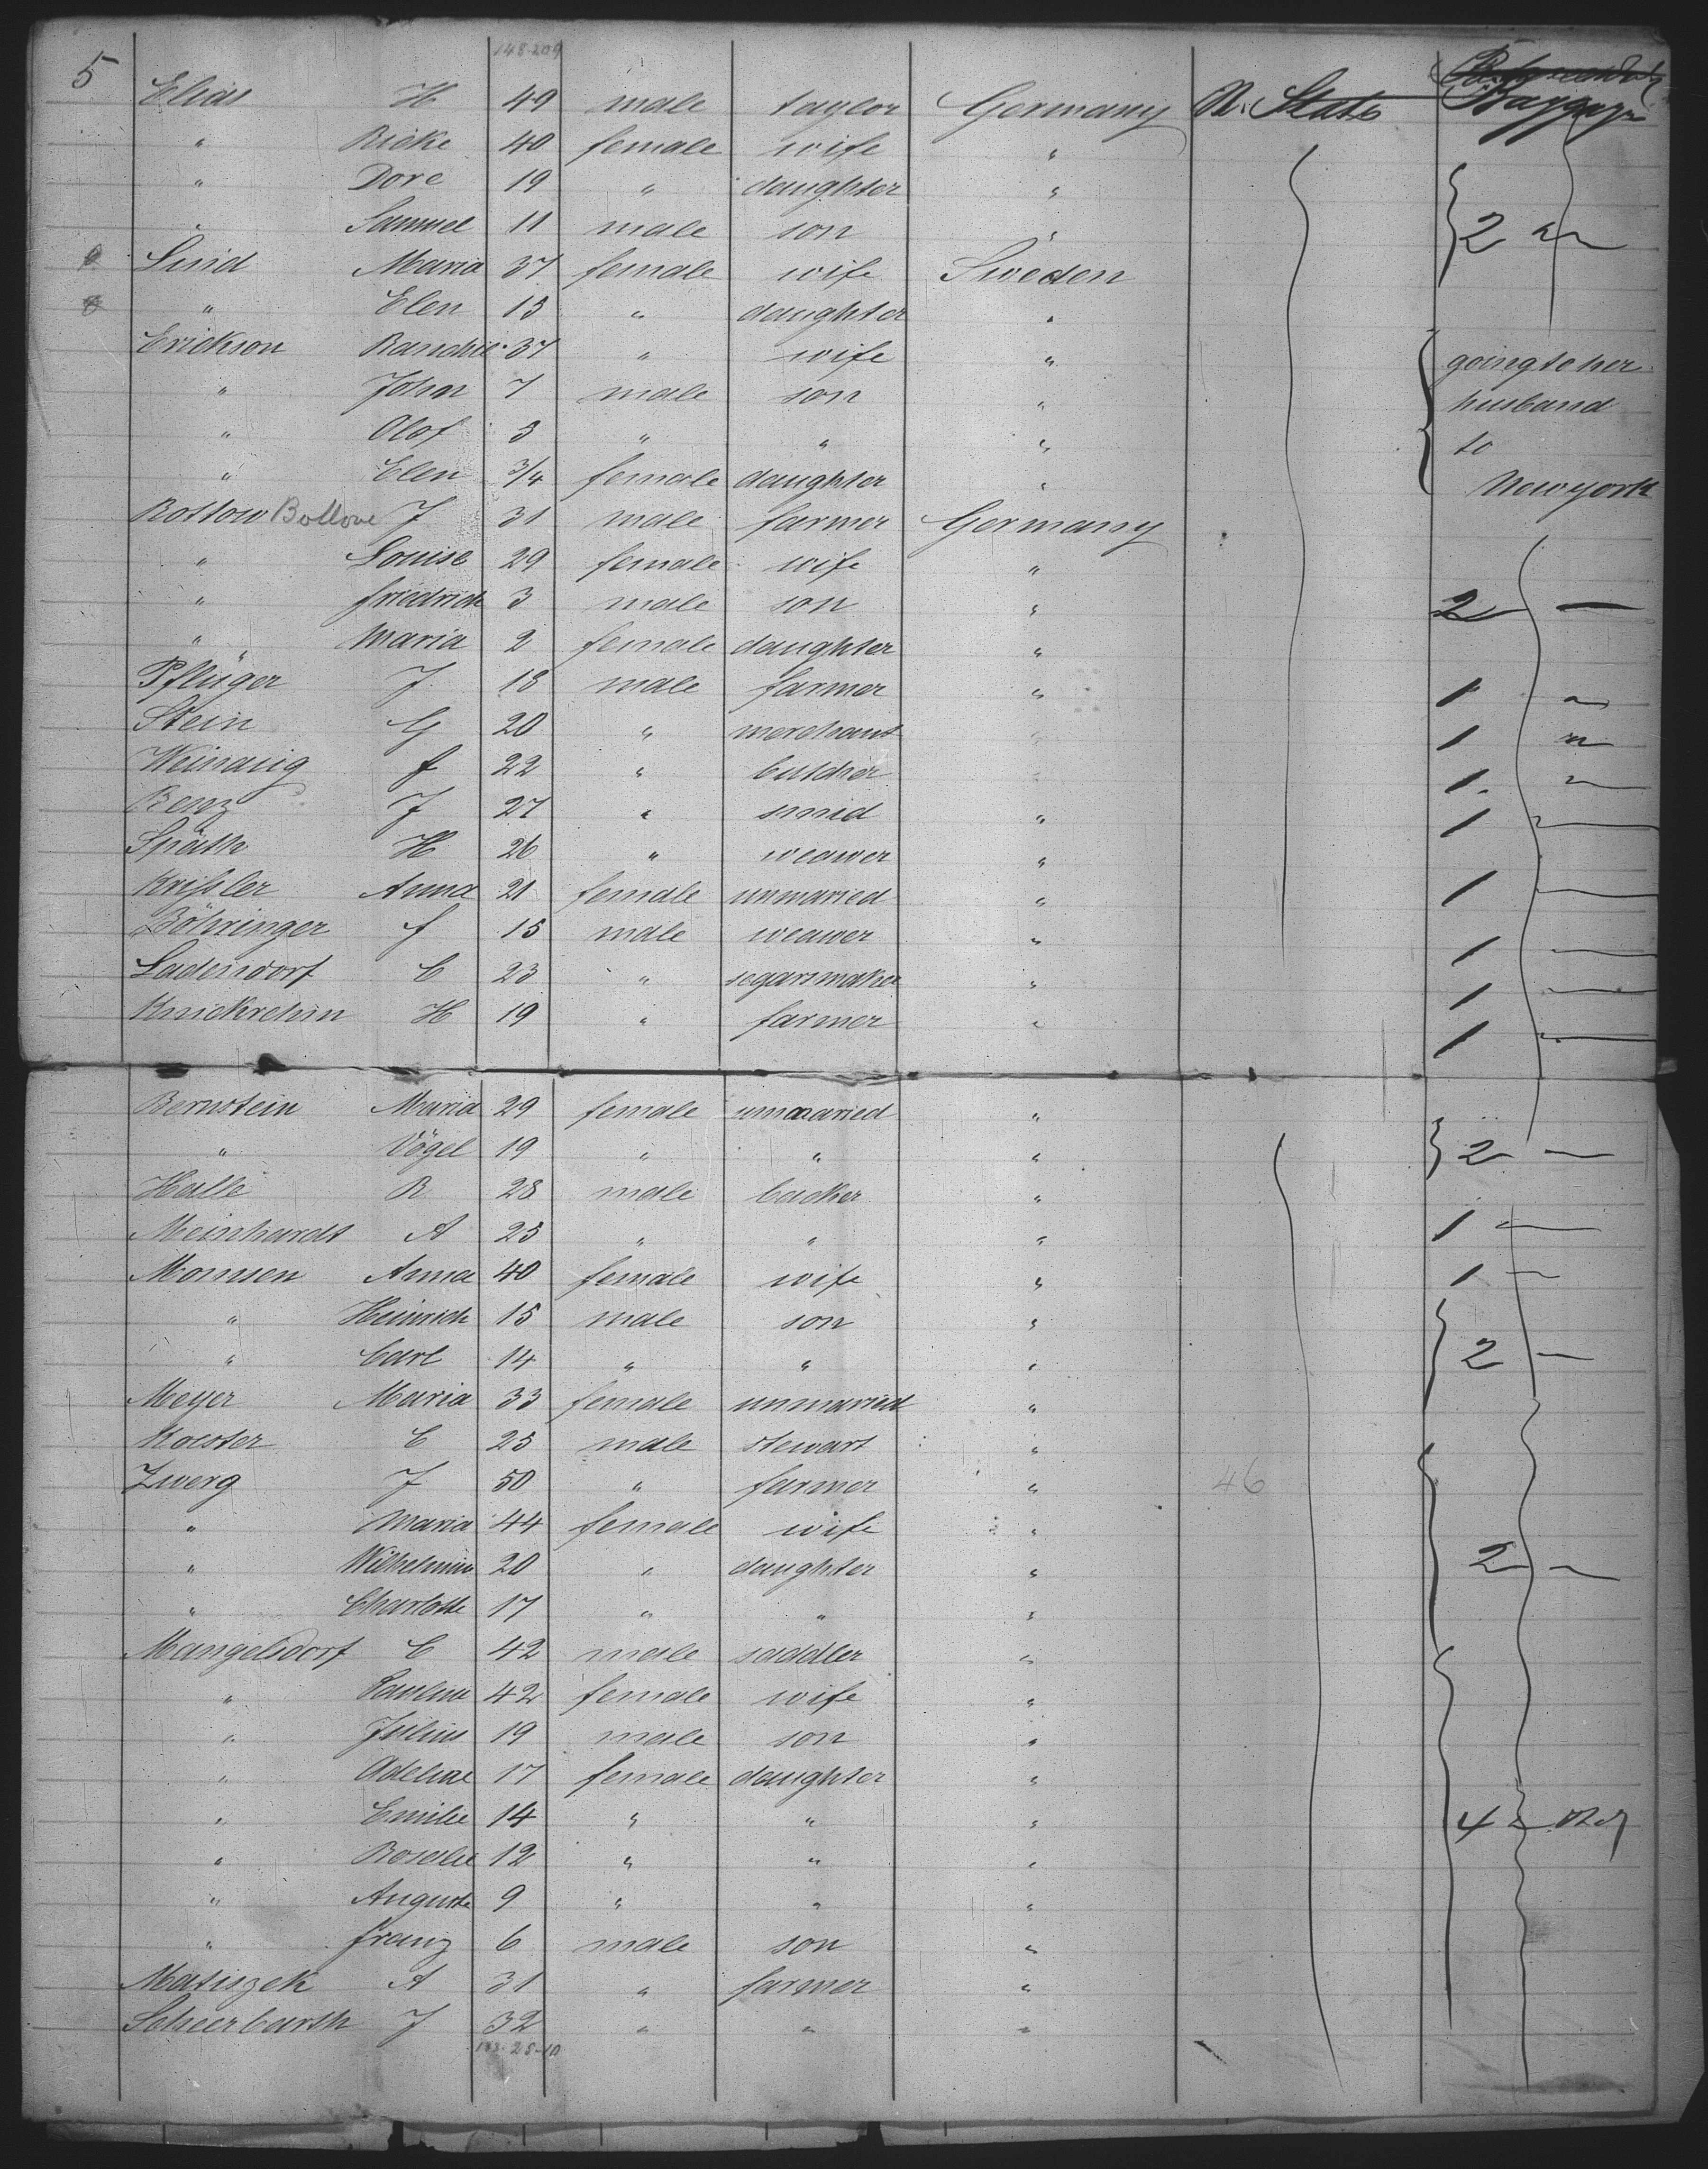 148-209
5 Elias H 49 male taylor Germany N. State Baggage
" Ricke 40 female wife "
" Dore 19 " daughter "
" Samuel 11 male son " 2
Lind Maria 37 female wife Sweden
" Elen 13 " daughter "
Erickson 37 " wife " going to her
" Johan 7 male son " husband
" Olof 3 " " " to
" Elen 3/4 female daughter " New york
Rottow Bollow J 31 male farmer Germany
" Louise 29 female wife "
" Friedrich 3 male son " 2 —
" Maria 2 female daughter "
Pflüger J 18 male farmer " 1
Stein G 20 " merchant " 1 "
Weinauig F 22 " butcher " 1
Renz J 27 " smid " 1
Späth H 26 " weawer "
Krissler Anna 21 female unmaried " 1
Böhringer F 15 male weawer " 1
Ladendorf C 23 " segarsmaker " 1
Knickrehm H 19 " farmer " 1
Bernstein Maria 29 female unmaried "
" Vögel 19 " " " 2 —
Halle R 28 male backer "
Meinhardt A 25 " " " 1
Momsen Anna 40 female wife " 1 —
" Heinrich 15 male son "
" Carl 14 " " " 2 —
Meyer Maria 33 female unmaried "
Koester C 25 male stewart "
Zwerg J 50 " farmer " 46
" Maria 44 female wife "
" Wilhelmin 20 " daughter " 2 —
" Charlotte 17 " " "
Mangelsdorf C 42 male saddler "
" Pauline 42 female wife "
" Julius 19 male son "
" Adeline 17 female daughter "
" Emilie 14 " " " 4
" Rosalie 12 " " "
" Auguste 9 " " "
" Franz 6 male son "
Matiszek A 31 " farmer "
Scheerbarth J 32 " " "